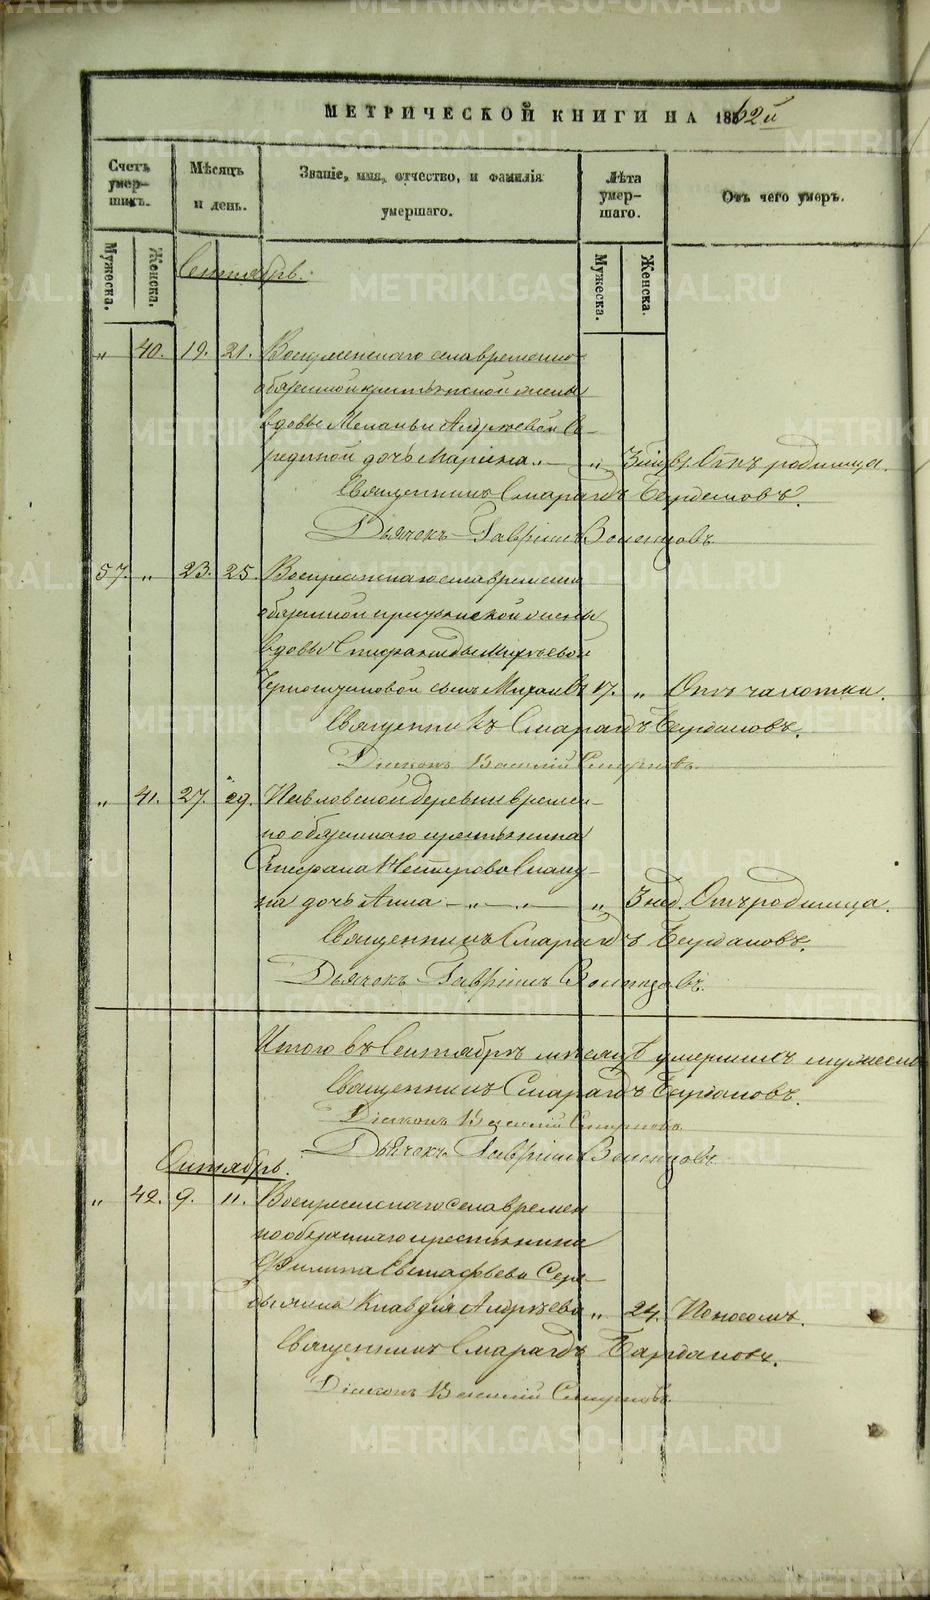 МЕТРИЧЕСКОЙ КНИГИ НА 1862й
Счетъ умер-шихъ.
Мужеска.
Женска.
Мѣсяцъ и день.
Званіе, имя, отчество, и фамилія умершаго.
Лѣта умер-шаго.
Мужеска.
Женска.
Отъ чего умеръ.
Сентябрь.
„ 40. 19. 21. Воскресенскаго села временно-
обязанной крестьянской жены
вдовы Меланьи Андреевой
дочь Марина „ „ 3 Отъ родимца.
Священникъ Смарагдъ Бурдаковъ.
Дьячокъ Гавріилъ
57. „ 23. 25. Воскресенскаго села временно
обязанной крестьянской жены
вдовы Степаниды Михѣевой
сынъ Михаилъ 17. „ Отъ чахотки.
Священникъ Смарагдъ Бурдаковъ.
Діаконъ Василій Смирновъ.
„ 41. 27. 29. Павловской деревни времен-
но обязаннаго крестьянина
Стефана Нестерова
на дочь Анна „ „ 3 нед. Отъ родимца.
Священникъ Смарагдъ Бурдаковъ.
Дьячокъ Гавріилъ
Итого въ Сентябрѣ мѣсяцѣ умершихъ мужеска
Священникъ Смарагдъ Бурдаковъ.
Діаконъ Василій Смирновъ.
Дьячокъ Гавріилъ
Октябрь.
„ 42. 9. 11. Воскресенскаго села времен
но обязаннаго крестьянина
Филипа Евстафьева
жена Клавдія Андреева „ 24. Поносомъ.
Священникъ Смарагдъ Бурдаковъ.
Діаконъ Василій Смирновъ.
METRIKI.GASO-URAL.RU